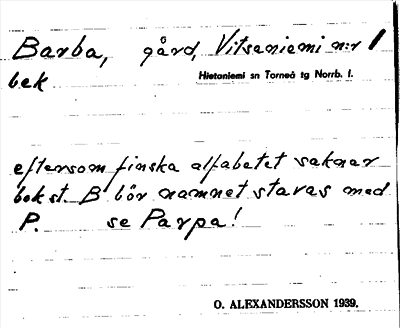 Barba, gård, Vitsaniemi n:r 1
Hietaniemi sn Torneå tg Norrb. l.
bek
eftersom finska alfabetet saknar
bokst. B bör namnet stavas med
P. se Parpa!
O. ALEXANDERSSON 1939.